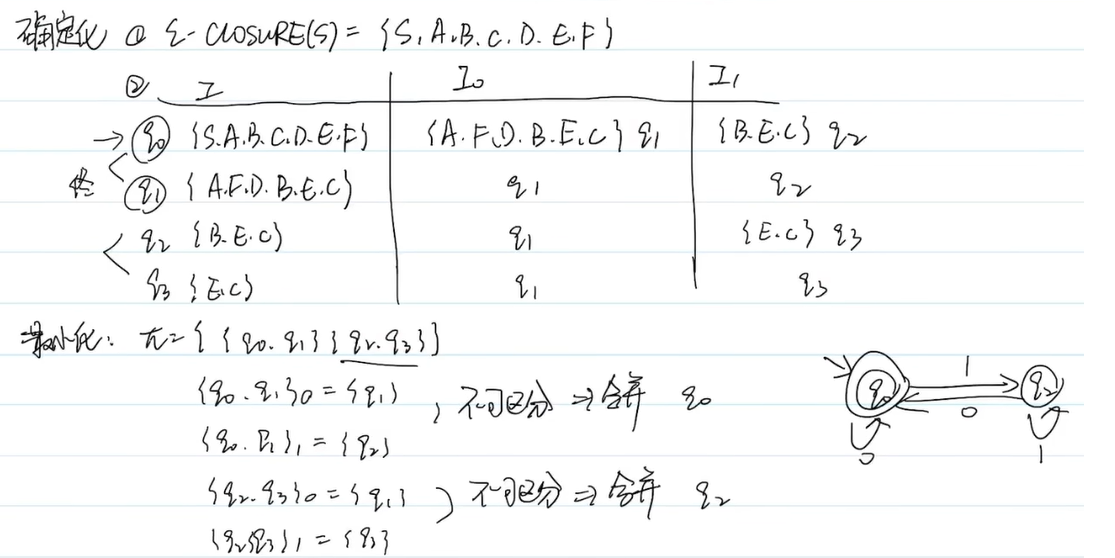 确定化 ① ε-CLOSURE(S) = {S.A.B.C.D.E.F}
② I I0 I1
→ q0 {S.A.B.C.D.E.F} {A.F.D.B.E.C} q1 {B.E.C} q2
终 q1 {A.F.D.B.E.C} q1 q2
q2 {B.E.C} q1 {E.C} q3
q3 {E.C} q1 q3
最小化: π={ {q0.q1} {q2.q3} }
{q0.q1}0 = {q1}
, 不可区分 ⇒ 合并 q0
{q0.q1}1 = {q2}
{q2.q3}0 = {q1}
) 不可区分 ⇒ 合并 q2
{q2q3}1 = {q3}
q0 1 q2
0
0 1